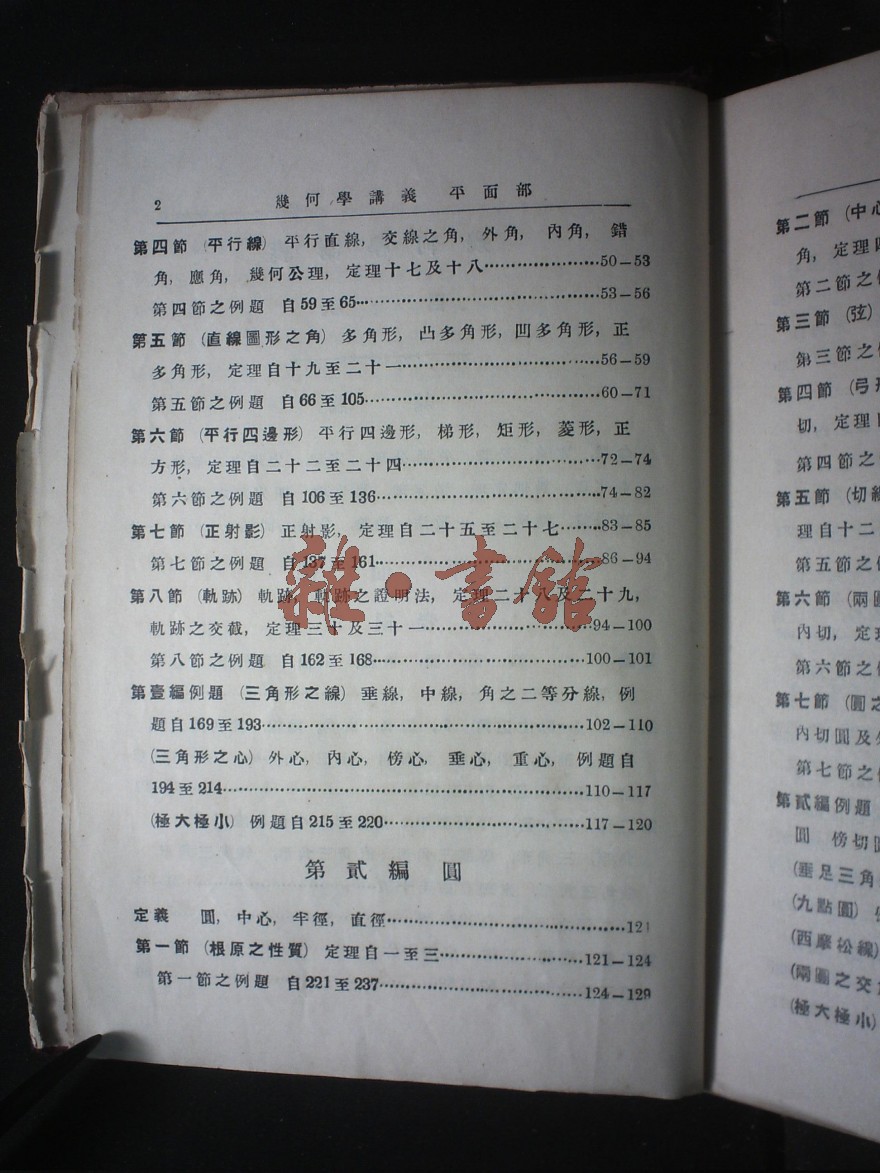 2 幾何學講義 平面部
第四節 (平行線) 平行直線, 交線之角, 外角, 內角, 錯
角, 應角, 幾何公理, 定理十七及十八……………50—53
第四節之例題 自59至65……………53—56
第五節 (直線圖形之角) 多角形, 凸多角形, 凹多角形, 正
多角形, 定理自十九至二十一……………56—59
第五節之例題 自66至105……………60—71
第六節 (平行四邊形) 平行四邊形, 梯形, 矩形, 菱形, 正
方形, 定理自二十二至二十四……………72—74
第六節之例題 自106至136……………74—82
第七節 (正射影) 正射影, 定理自二十五至二十七……83—85
第七節之例題 自137至161……………86—94
第八節 (軌跡) 軌跡, 軌跡之證明法, 定理二十八及二十九,
軌跡之交截, 定理三十及三十一……………94—100
第八節之例題 自162至168……………100—101
第壹編例題 (三角形之線) 垂線, 中線, 角之二等分線, 例
題自169至193……………102—110
(三角形之心) 外心, 內心, 傍心, 垂心, 重心, 例題自
194至214……………110—117
(極大極小) 例題自215至220……………117—120
第貳編 圓
定義 圓, 中心, 半徑, 直徑……………121
第一節 (根原之性質) 定理自一至三……………121—124
第一節之例題 自221至237……………124—129
雜·書館
第二節 (中心
角, 定理
第二節之
第三節 (弦)
第三節之
第四節 (弓形
切, 定理
第四節之
第五節 (切線
理自十二
第五節之例
第六節 (兩圓
內切, 定理
第六節之例
第七節 (圓之
內切圓及
第七節之
第貳編例題
圓 傍切圓
(垂足三角
(九點圓)
(西摩松線)
(兩圓之交角
(極大極小)